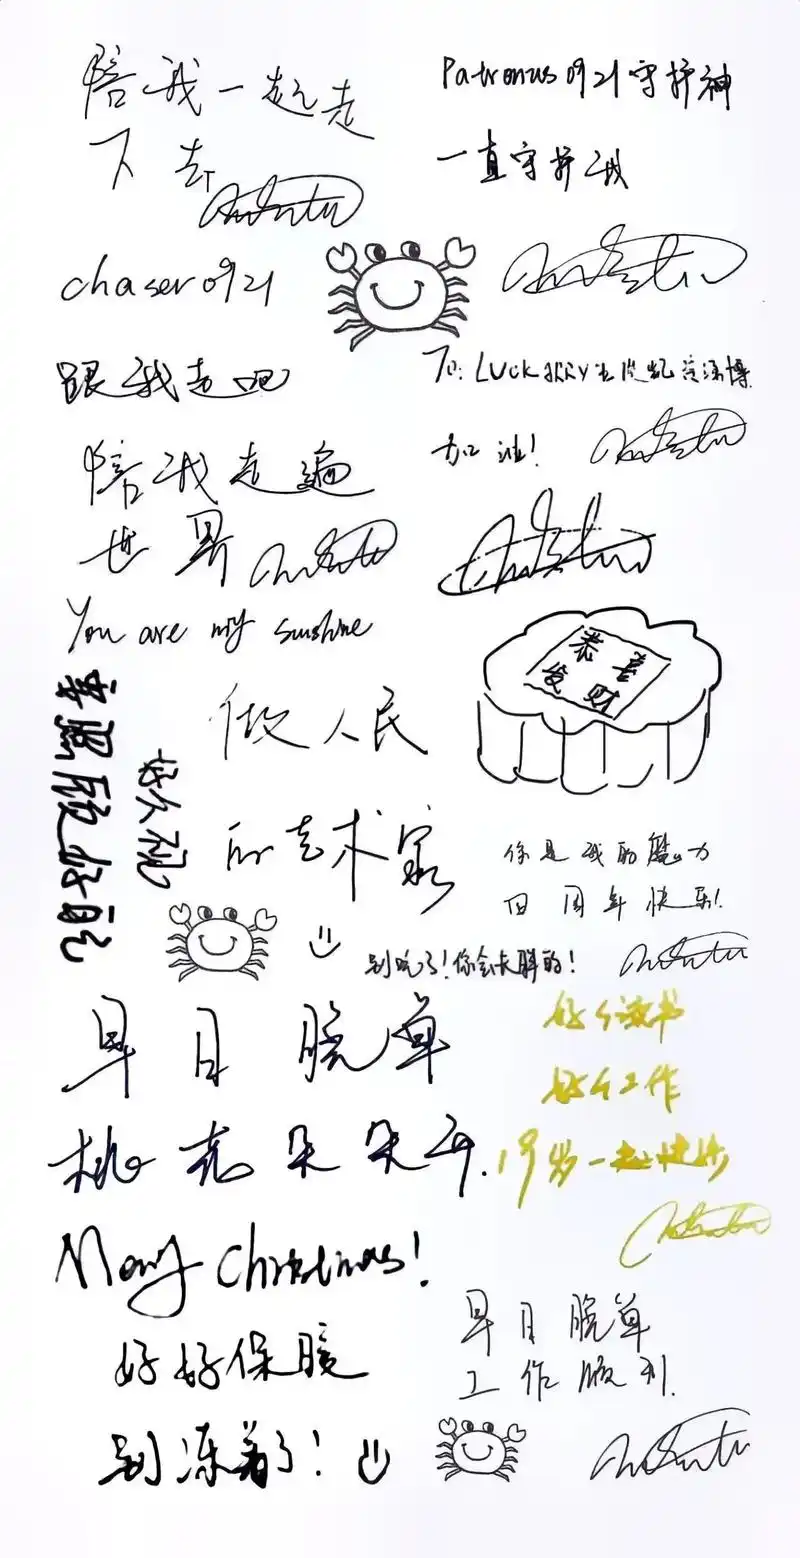 陪我一起走
下去
Patronus0921守护神
一直守护我
chaser0921
跟我走吧
To: LUCKJERRY王俊凯资源博
加油!
陪我走遍
世界
You are my sunshine
恭喜
发财
做人民
的艺术家
要照顾好自己
你是我的魔力
四周年快乐!
别吃了!你会失联的!
早日脱单
桃花朵朵开.
好好读书
好好工作
19岁一起快乐
Merry Christmas!
好好保暖
别冻着了!
早日脱单
工作顺利.